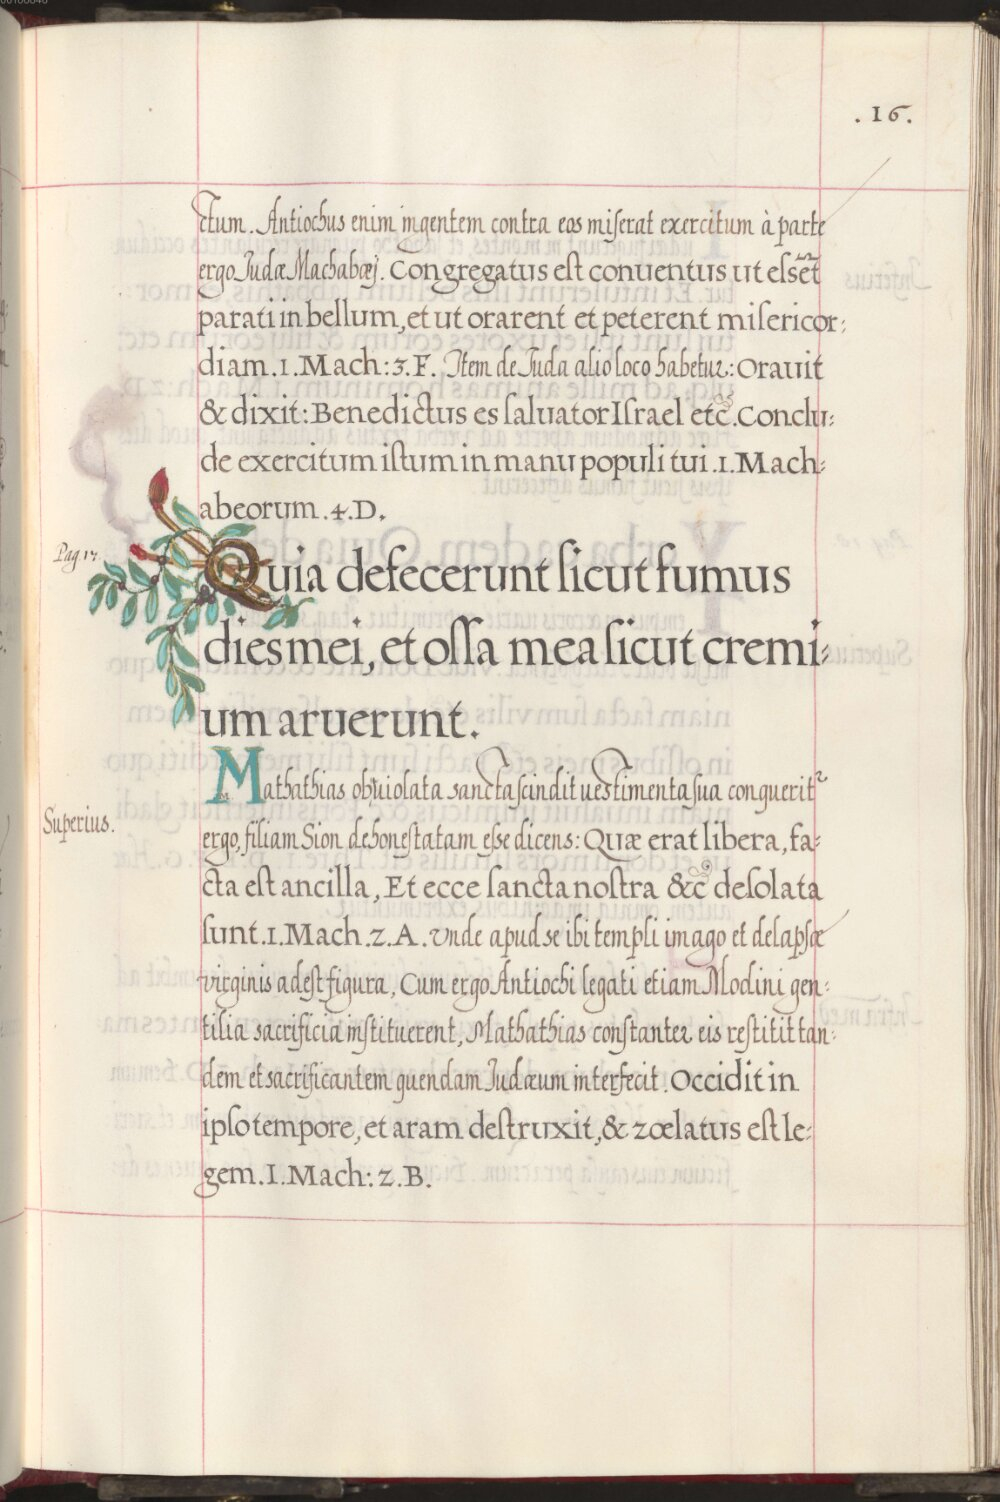 .16.
ctum. Antiochus enim ingentem contra eos miserat exercitum à parte
ergo Judæ Machabæj. Congregatus est conuentus ut elsēt
parati in bellum, et ut orarent et peterent misericor:
diam. 1. Mach: 3. F. Item de Juda alio loco habetur: Orauit
& dixit: Benedictus es saluator Israel etc̃. Conclu:
de exercitum istum in manu populi tui. 1. Mach:
abeorum. 4. D.
Pag. 17.
Quia defecerunt sicut fumus
dies mei, et ossa mea sicut cremi:
um aruerunt.
Mathathias ob uiolata sancta scindit uestimenta sua conquerit²
Superius.
ergo, filiam Sion dehonestatam esse dicens: Quæ erat libera, fa:
cta est ancilla, Et ecce sancta nostra &c̃ desolata
sunt. 1. Mach. 2. A. Vnde apud se ibi templi imago et delapsæ
virginis adest figura, Cum ergo Antiochi legati etiam Modini gen:
tilia sacrificia instituerent, Mathathias constanter eis restitit tan:
dem et sacrificantem quendam Judæum interfecit. Occidit in
ipso tempore, et aram destruxit, & zœlatus est le:
gem. I. Mach: 2. B.